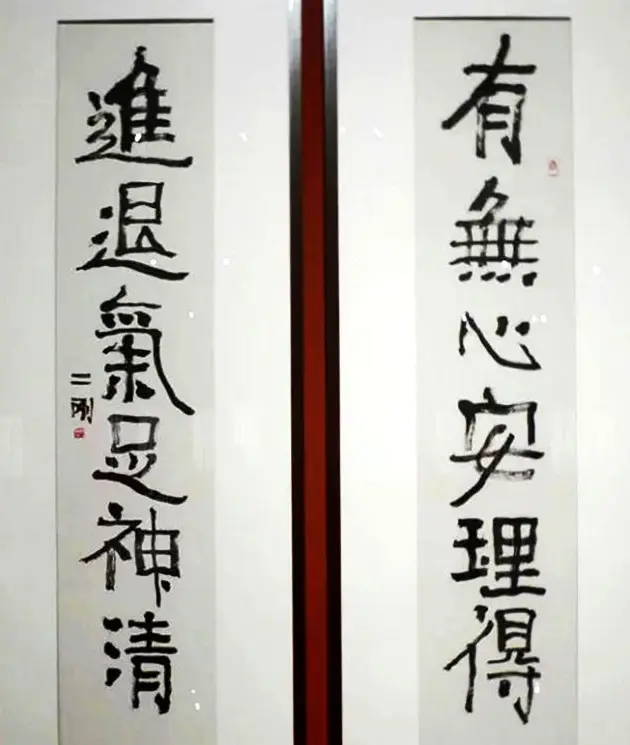 有無心安理得
進退氣足神清
二剛